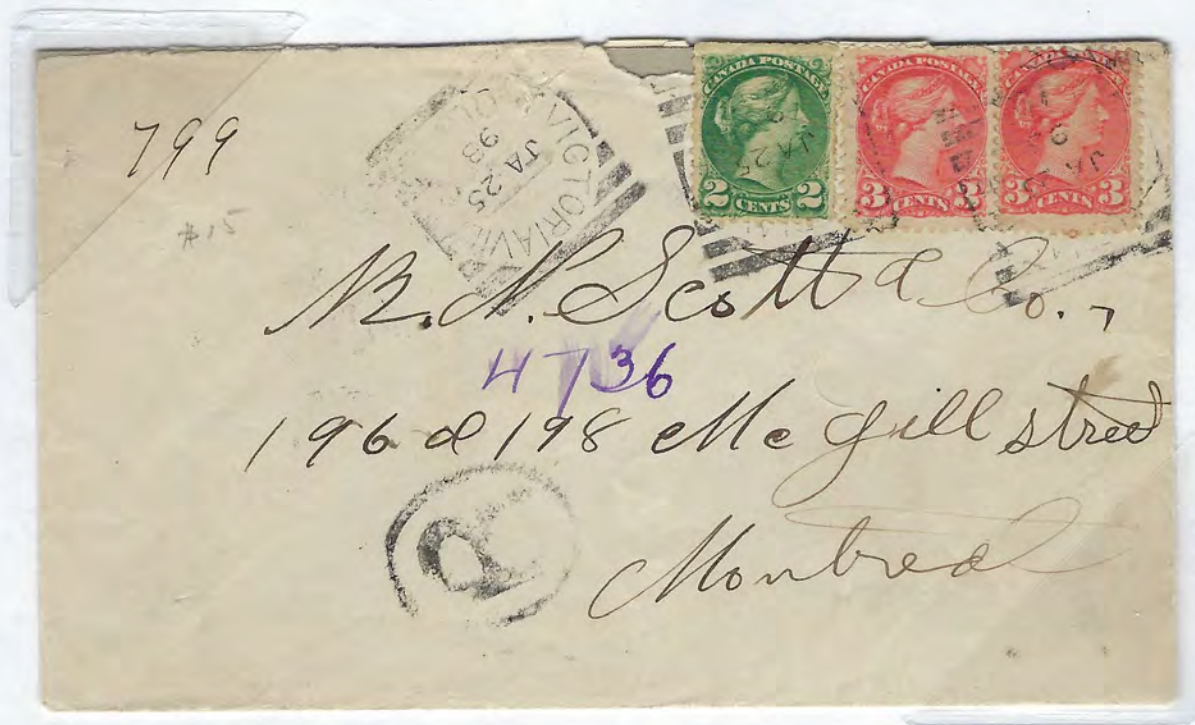 799
#15
VICTORIAVI
JA 25
98
CANADA POSTAGE
2 CENTS 2
JA 25
CANADA POSTAGE
3 CENTS 3
CANADA POSTAGE
3 CENTS 3
JA
Scott & Co.,
4736
196 & 198 Mc Gill street
R
Montreal